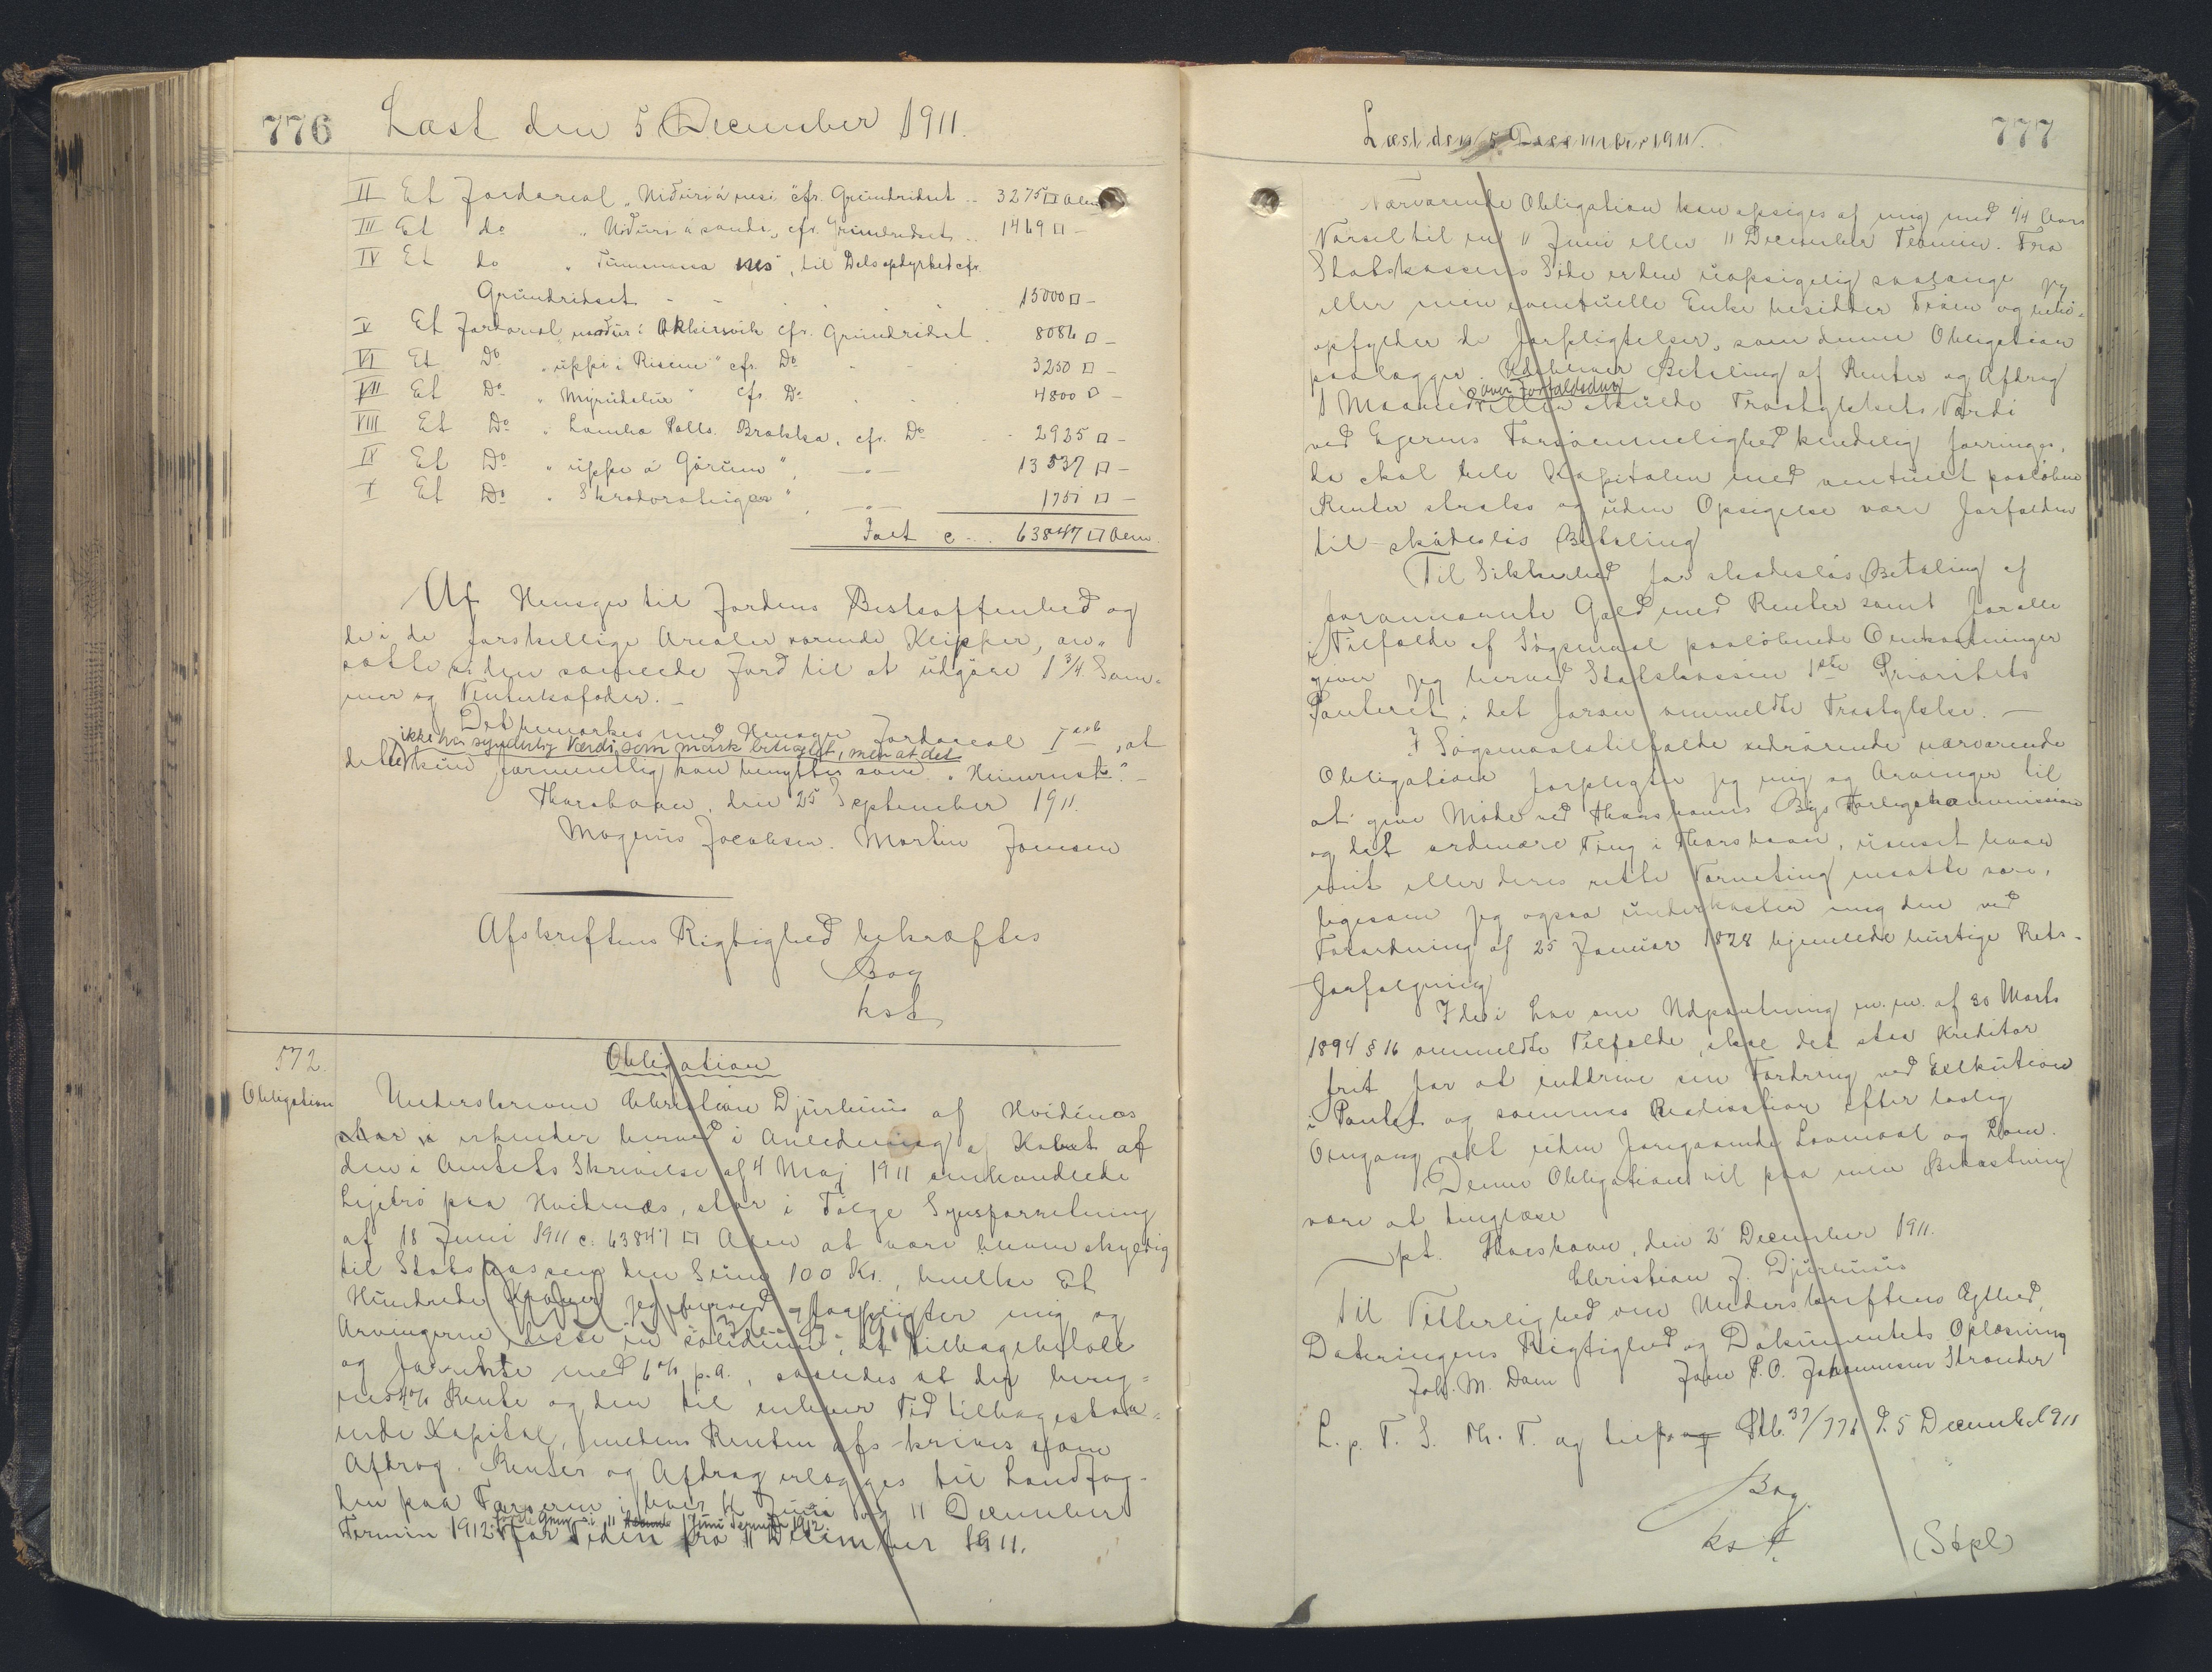 776
Læst den 5 December 1911.
II Et Jordareal „Niðuri á nesi cfr. Grundridset .. 3275 □ Alen
III Et do „Niðuri á sande, cfr. Grundridset .. 1469 □ —
IV Et do „ nes", til Dels opdyrket cfr.
Grundridset 15000 □ —
V Et Jordareal Okkursvik cfr. Grundridset 8086 □ —
VI Et Do „uppi i Risum" cfr. Do 3250 □ —
VII Et Do „Myrudalur" cfr. Do 4800 □ —
VIII Et Do „Lamba Palls. Brekka, cfr. Do 2925 □ —
IX Et Do „uppi á Gørum", —„— 13537 □ —
X Et Do „ ", —„— 1751 □ —
Ialt c. .. 63847 □ Alen.
Af Hensyn til Jordens Beskaffenhed og
de i de forskellige Arealer værende Klipper, an-
sættes den samlede Jord til at udgøre 1 3/4 Som-
mer og Vinterkofoder. —
Det bemærkes med Hensyn Jordareal I , at
ikke har synderlig Værdi som Mark betragtet, men at det
dette kun formentlig kan benyttes som „Heimrust". —
Thorshavn, den 25 September 1911.
Mogens Jacobsen. Martin Joensen
Afskriftens Rigtighed bekræftes
Bog
kst
572.
Obligation
Obligation
Underskrevne Christian Djurhuus af Hvidenæs
erkender herved i Anledning af Købet af
den i Amtets Skrivelse af 4 Maj 1911 omhandlede
Lejetrø paa Hvidenæs, stor i Følge Synsforretning
af 18 Juni 1911 c. 63847 □ Alen at være bleven skyldig
til Statskassen den Sum 100 Kr., hvilke Et
Hundrede Kroner jeg herved forpligter mig og
Arvingerne disse in solidum, at tilbagebetale
og forrente med 6% p.a., saaledes at der bereg-
nes 4% Rente og den til enhver Tid tilbagestaa-
ende Kapital, medens Resten afskrives som
Afdrag. Renter og Afdrag erlægges til Landfog-
den paa Færøerne i hver 11 Juni og 11 December
første Gang i 11 Juni Termin 1912
Termin 1912 for Tiden fra 11 December 1911.
Læst den 5 December 1911.
777
Nærværende Obligation kan opsiges af mig med 1/4 Aars
Varsel til en 11 Juni eller 11 December Termin. Fra
Statskassens Side er den uopsigelig saalænge jeg
eller min eventuelle Enke besidder Trøen og
opfylder de Forpligtelser, som denne Obligation
paalægger. Udebliver Betaling af Renter og Afdrag
over Forfaldsdag
1 Maaned eller skulde Trøstykkets Værdi
ved Ejerens Forsømmelighed kendelig forringes,
da skal hele Kapitalen med eventuelt paaløbne
Renter straks og uden Opsigelse være forfalden
til skadesløs Betaling
Til Sikkerhed for skadesløs Betaling af
forannævnte Gæld med Renter samt for alle
i Tilfælde af Søgsmaal paaløbende Omkostninger
giver jeg herved Statskassen 1ste Prioritets
Panteret i det foran ommeldte Trøstykke. —
I Søgsmaalstilfælde vedrørende nærværende
Obligation forpligter jeg mig og Arvinger til
at give Møde ved Thorshavns Bys Forligskommission
og det ordinære Ting i Thorshavn, uanset hvor
mit eller deres rette Værneting maatte være,
ligesom jeg ogsaa underkaster mig den ved
Forordning af 25 Januar 1828 hjemlede hurtige Rets-
forfølgning
I de i Lov om Udpantning m.m. af 30 Marts
1894 § 16 ommeldte Tilfælde, skal det staa Kreditor
frit for at inddrive sin Fordring ved Eksekution
i Pantet og sammes Realisation efter lovlig
Omgang, alt uden foregaaende Lovmaal og Dom.
Denne Obligation vil paa min Bekostning
være at tinglæse
pt. Thorshavn, den 2 December 1911.
Christian J. Djurhuus
Til Vitterlighed om Underskriftens Ægthed,
Dateringens Rigtighed og Dokumentets Oplæsning
Joh. M. Dam Joen P.O. Johannesen Strender
L. p. T. S. Th. T. og Ptb. 37/776 D. 5 December 1911
Bog.
kst.
(Stpl)